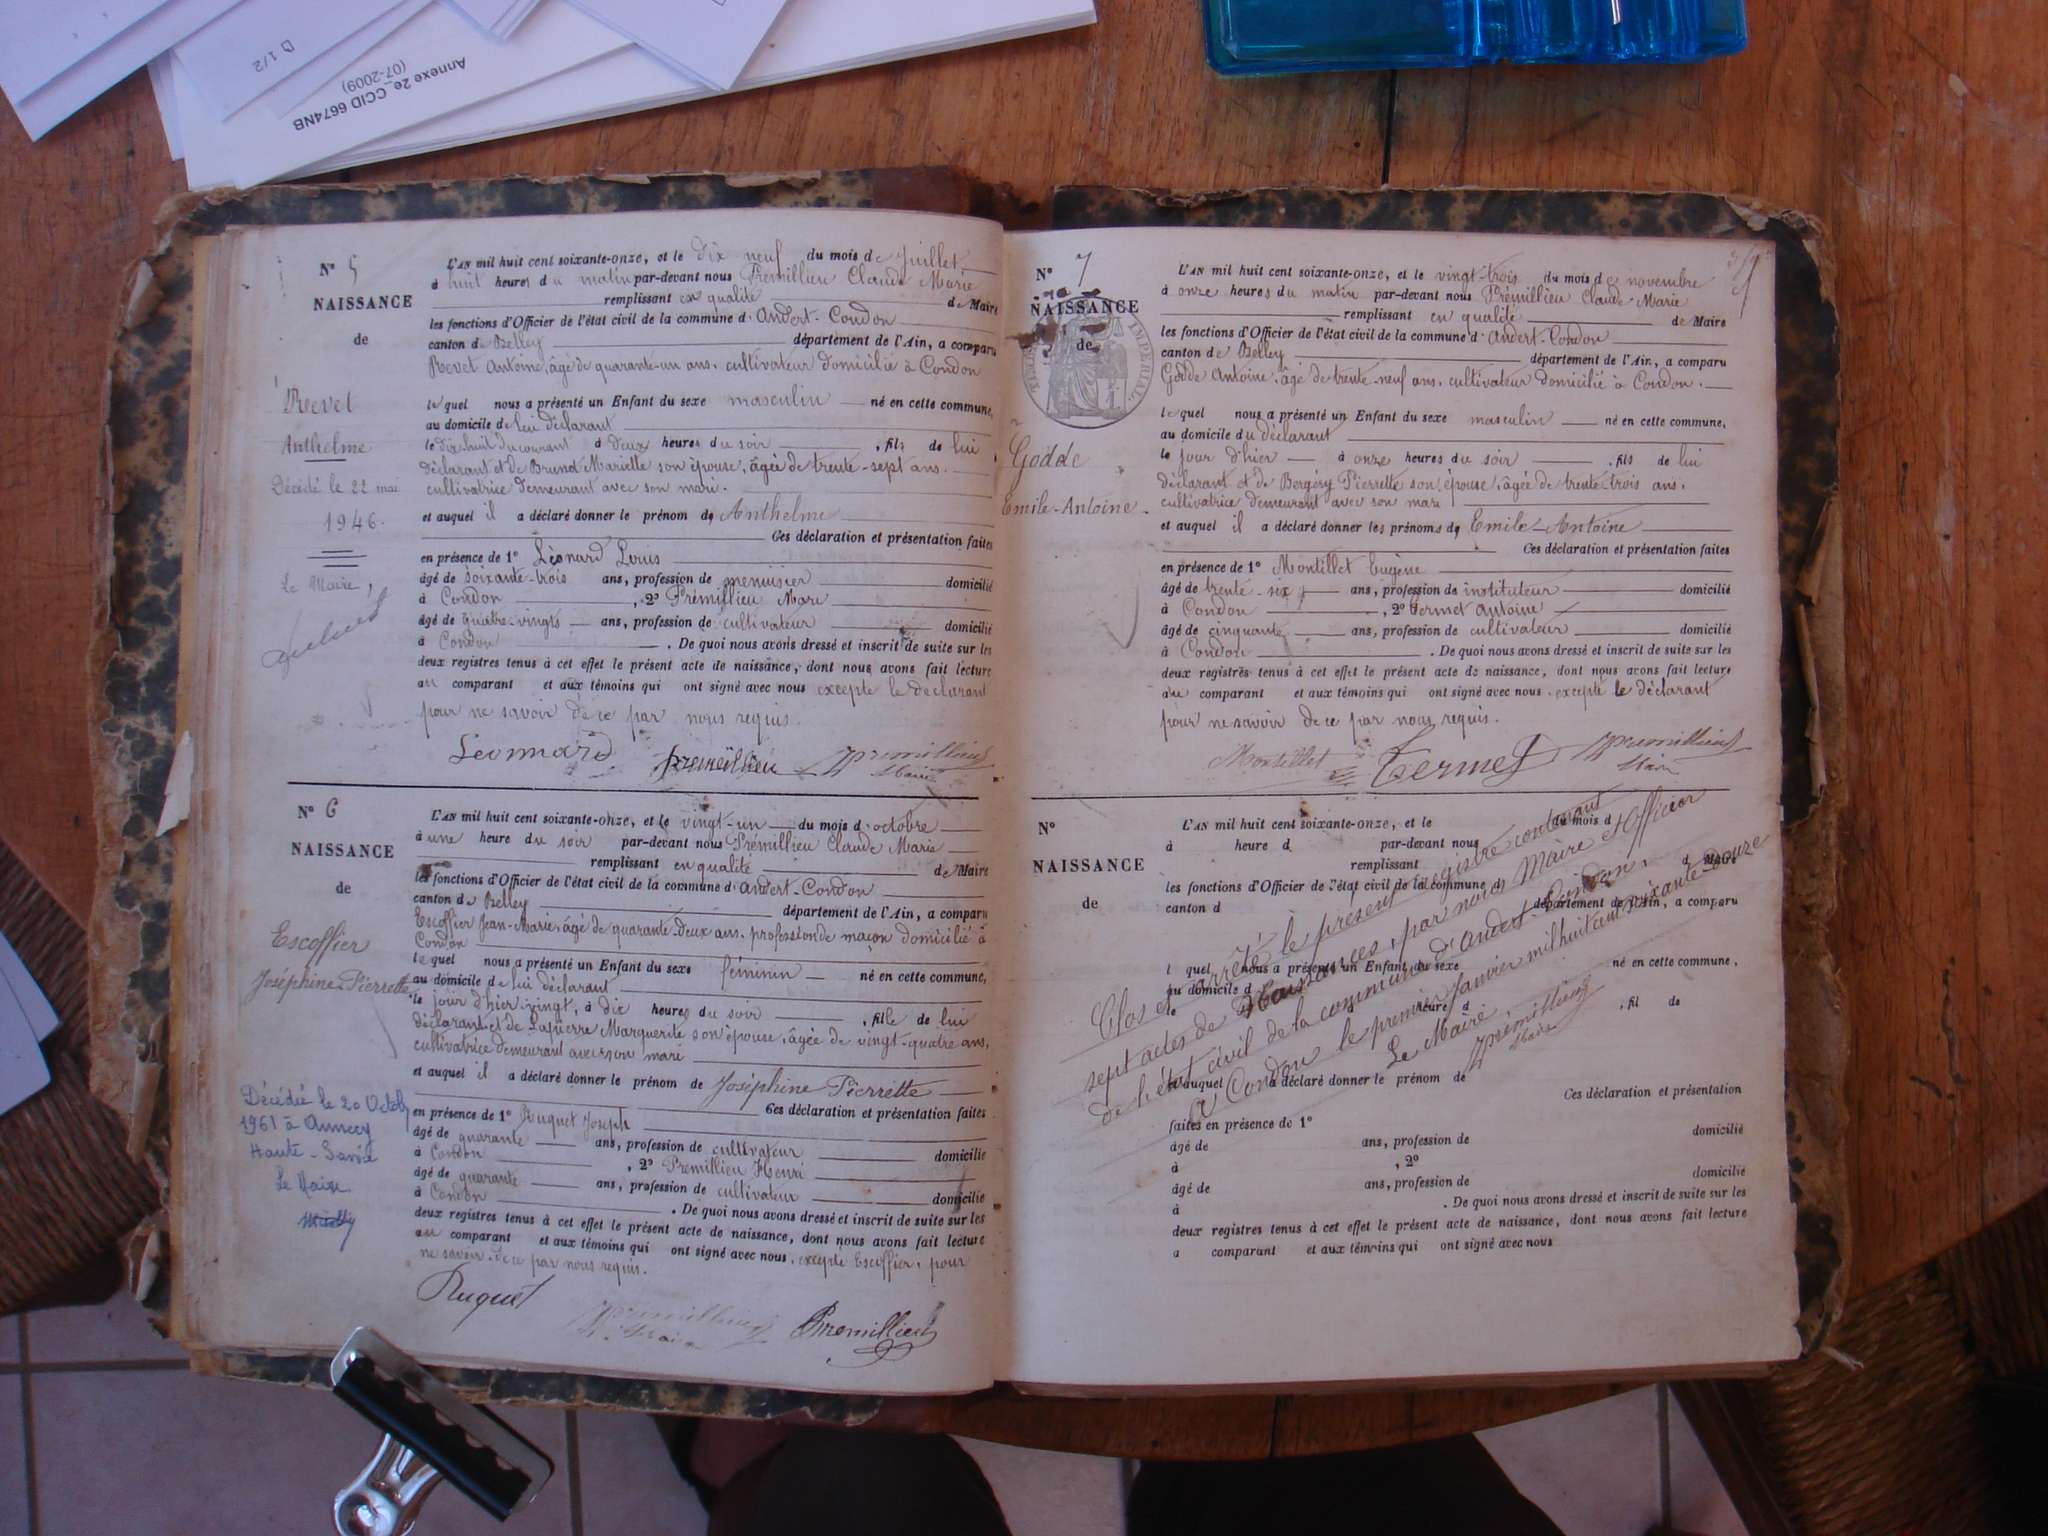 D 1/2
Annexe 2e_CCID 6674NB
(07-2009)
N° 5
NAISSANCE
de
Revet
Anthelme
Décédé le 22 mai
1946.
Le Maire,
L'AN mil huit cent soixante-onze, et le dix neuf du mois de Juillet
à huit heures du matin par-devant nous Prémillieu Claude Marie
remplissant en qualité de Maire
les fonctions d'Officier de l'état civil de la commune d'Andert-Condon
canton de Belley département de l'Ain, a comparu
Revet Antoine, âgé de quarante-un ans, cultivateur domicilié à Condon
lequel nous a présenté un Enfant du sexe masculin né en cette commune,
au domicile de lui déclarant
le dix huit du courant à deux heures du soir, fils de lui
déclarant et de Brunet Mariette son épouse, âgée de trente-sept ans.
cultivatrice demeurant avec son mari.
et auquel il a déclaré donner le prénom de Anthelme
Ces déclaration et présentation faites
en présence de 1° Léonard Louis
âgé de soixante-trois ans, profession de menuisier domicilié
à Condon, 2° Prémillieu Marc
âgé de quatre-vingts ans, profession de cultivateur domicilié
à Condon. De quoi nous avons dressé et inscrit de suite sur les
deux registres tenus à cet effet le présent acte de naissance, dont nous avons fait lecture
au comparant et aux témoins qui ont signé avec nous excepté le déclarant
pour ne savoir de ce par nous requis.
Léonnard Premillieu Premillieu
Maire
N° 6
NAISSANCE
de
Escoffier
Joséphine-Pierrette
Décédée le 20 Octob
1961 à Annecy
Haute-Savoie
Le Maire
L'AN mil huit cent soixante-onze, et le vingt-un du mois d'octobre
à une heure du soir par-devant nous Prémillieu Claude Marie
remplissant en qualité de Maire
les fonctions d'Officier de l'état civil de la commune d'Andert-Condon
canton de Belley département de l'Ain, a comparu
Escoffier Jean-Marie, âgé de quarante-deux ans, profession de maçon domicilié à
Condon
lequel nous a présenté un Enfant du sexe féminin né en cette commune,
au domicile de lui déclarant
le jour d'hier vingt, à dix heures du soir, fille de lui
déclarant et de Lapierre Marguerite son épouse, âgée de vingt-quatre ans,
cultivatrice demeurant avec son mari
et auquel il a déclaré donner le prénom de Joséphine Pierrette
Ces déclaration et présentation faites
en présence de 1° Ruguet Joseph
âgé de quarante ans, profession de cultivateur domicilié
à Condon, 2° Premillieu Henri
âgé de quarante ans, profession de cultivateur domicilié
à Condon. De quoi nous avons dressé et inscrit de suite sur les
deux registres tenus à cet effet le présent acte de naissance, dont nous avons fait lecture
au comparant et aux témoins qui ont signé avec nous, excepté Escoffier, pour
ne savoir de ce par nous requis.
Ruguet Premillieu Premillieu
Maire
N° 7
NAISSANCE
de
IMPERIAL
Godde
Emile-Antoine
L'AN mil huit cent soixante-onze, et le vingt-trois du mois de novembre
à onze heures du matin par-devant nous Prémillieu Claude-Marie
remplissant en qualité de Maire
les fonctions d'Officier de l'état civil de la commune d'Andert-Condon
canton de Belley département de l'Ain, a comparu
Godde Antoine, âgé de trente-neuf ans, cultivateur domicilié à Condon.
lequel nous a présenté un Enfant du sexe masculin né en cette commune,
au domicile du déclarant
le jour d'hier à onze heures du soir, fils de lui
déclarant et de Bergéry Pierrette son épouse, âgée de trente-trois ans,
cultivatrice demeurant avec son mari
et auquel il a déclaré donner les prénoms de Emile-Antoine
Ces déclaration et présentation faites
en présence de 1° Montillet Eugène
âgé de trente-six ans, profession de instituteur domicilié
à Condon, 2° Termet Antoine
âgé de cinquante ans, profession de cultivateur domicilié
à Condon. De quoi nous avons dressé et inscrit de suite sur les
deux registres tenus à cet effet le présent acte de naissance, dont nous avons fait lecture
au comparant et aux témoins qui ont signé avec nous, excepté le déclarant
pour ne savoir de ce par nous requis.
Montillet Termet Premillieu
Maire
N°
NAISSANCE
de
L'AN mil huit cent soixante-onze, et le du mois d
à heure d par-devant nous
remplissant d Maire
les fonctions d'Officier de l'état civil de la commune d
canton d département de l'Ain, a comparu
l quel nous a présenté un Enfant du sexe né en cette commune,
au domicile d
le à heure d , fil de
et auquel a déclaré donner le prénom de
Ces déclaration et présentation
faites en présence de 1°
âgé de ans, profession de domicilié
à , 2°
âgé de ans, profession de domicilié
à . De quoi nous avons dressé et inscrit de suite sur les
deux registres tenus à cet effet le présent acte de naissance, dont nous avons fait lecture
a comparant et aux témoins qui ont signé avec nous
Clos et arrêté le présent registre contenant
sept actes de Naissances, par nous Maire et Officier
de l'état civil de la commune d'Andert-Condon,
à Condon le premier Janvier mil huit cent soixante-douze
Le Maire,
Premillieu
Maire